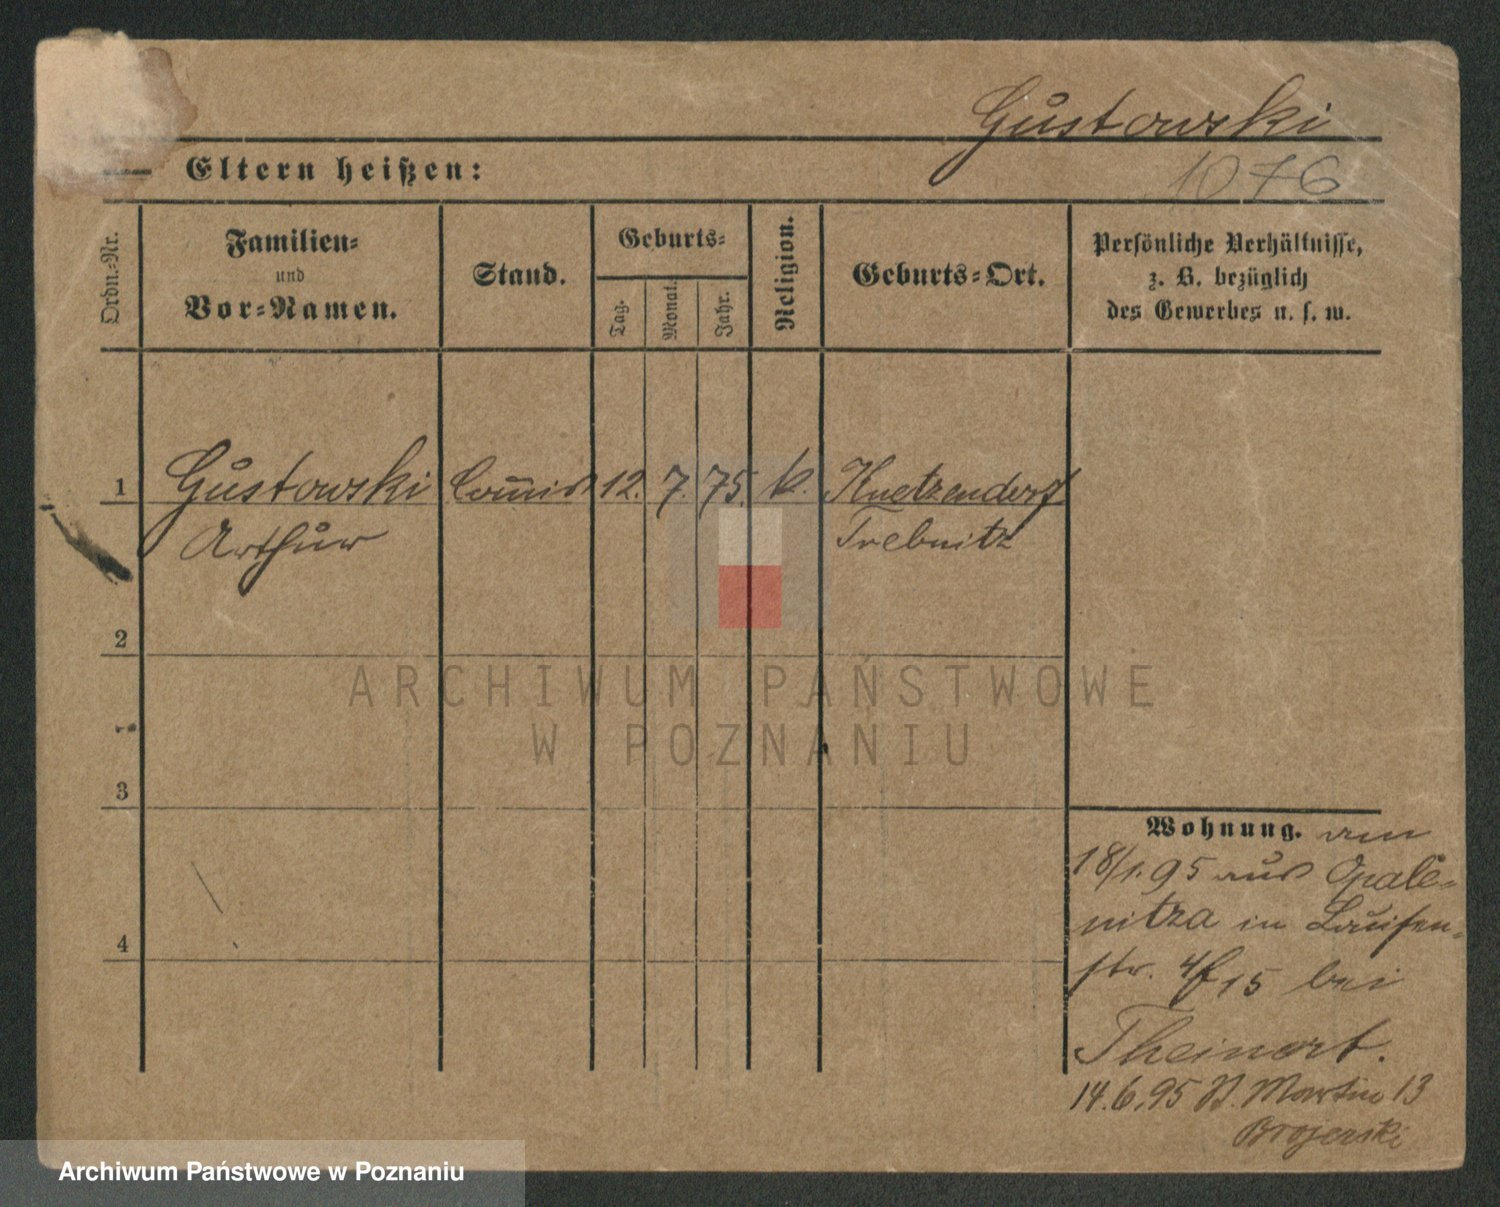 Gustowski
1076
Eltern heißen:
Ordn.-Nr.
Familien-
und
Vor-Namen.
Stand.
Geburts-
Tag.
Monat.
Jahr.
Religion.
Geburts-Ort.
Persönliche Verhältnisse,
z. B. bezüglich
des Gewerbes u. s. w.
1 Gustowski Commis 12. 7. 75. k. Knetzendorf
Arthur Trebnitz
2
3
4
Wohnung. am
18/1.95 aus Opale-
nitza in Louisen-
str. 15 bei
Theinert.
14.6.95 St. Martin 13
Brojerski
ARCHIWUM PAŃSTWOWE
W POZNANIU
Archiwum Państwowe w Poznaniu